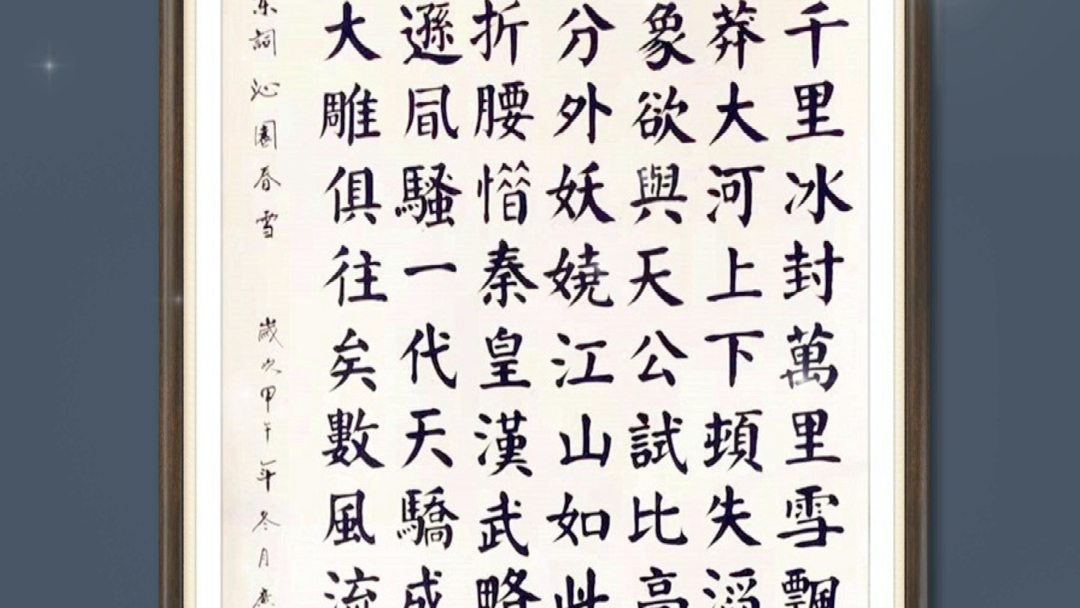 千里冰封萬里雪飄
莽大河上下頓失滔
象欲與天公試比高
分外妖嬈江山如此
折腰惜秦皇漢武略
遜凬騷一代天驕成
大雕俱往矣數風流
詞沁園春雪 歲次甲午年冬月